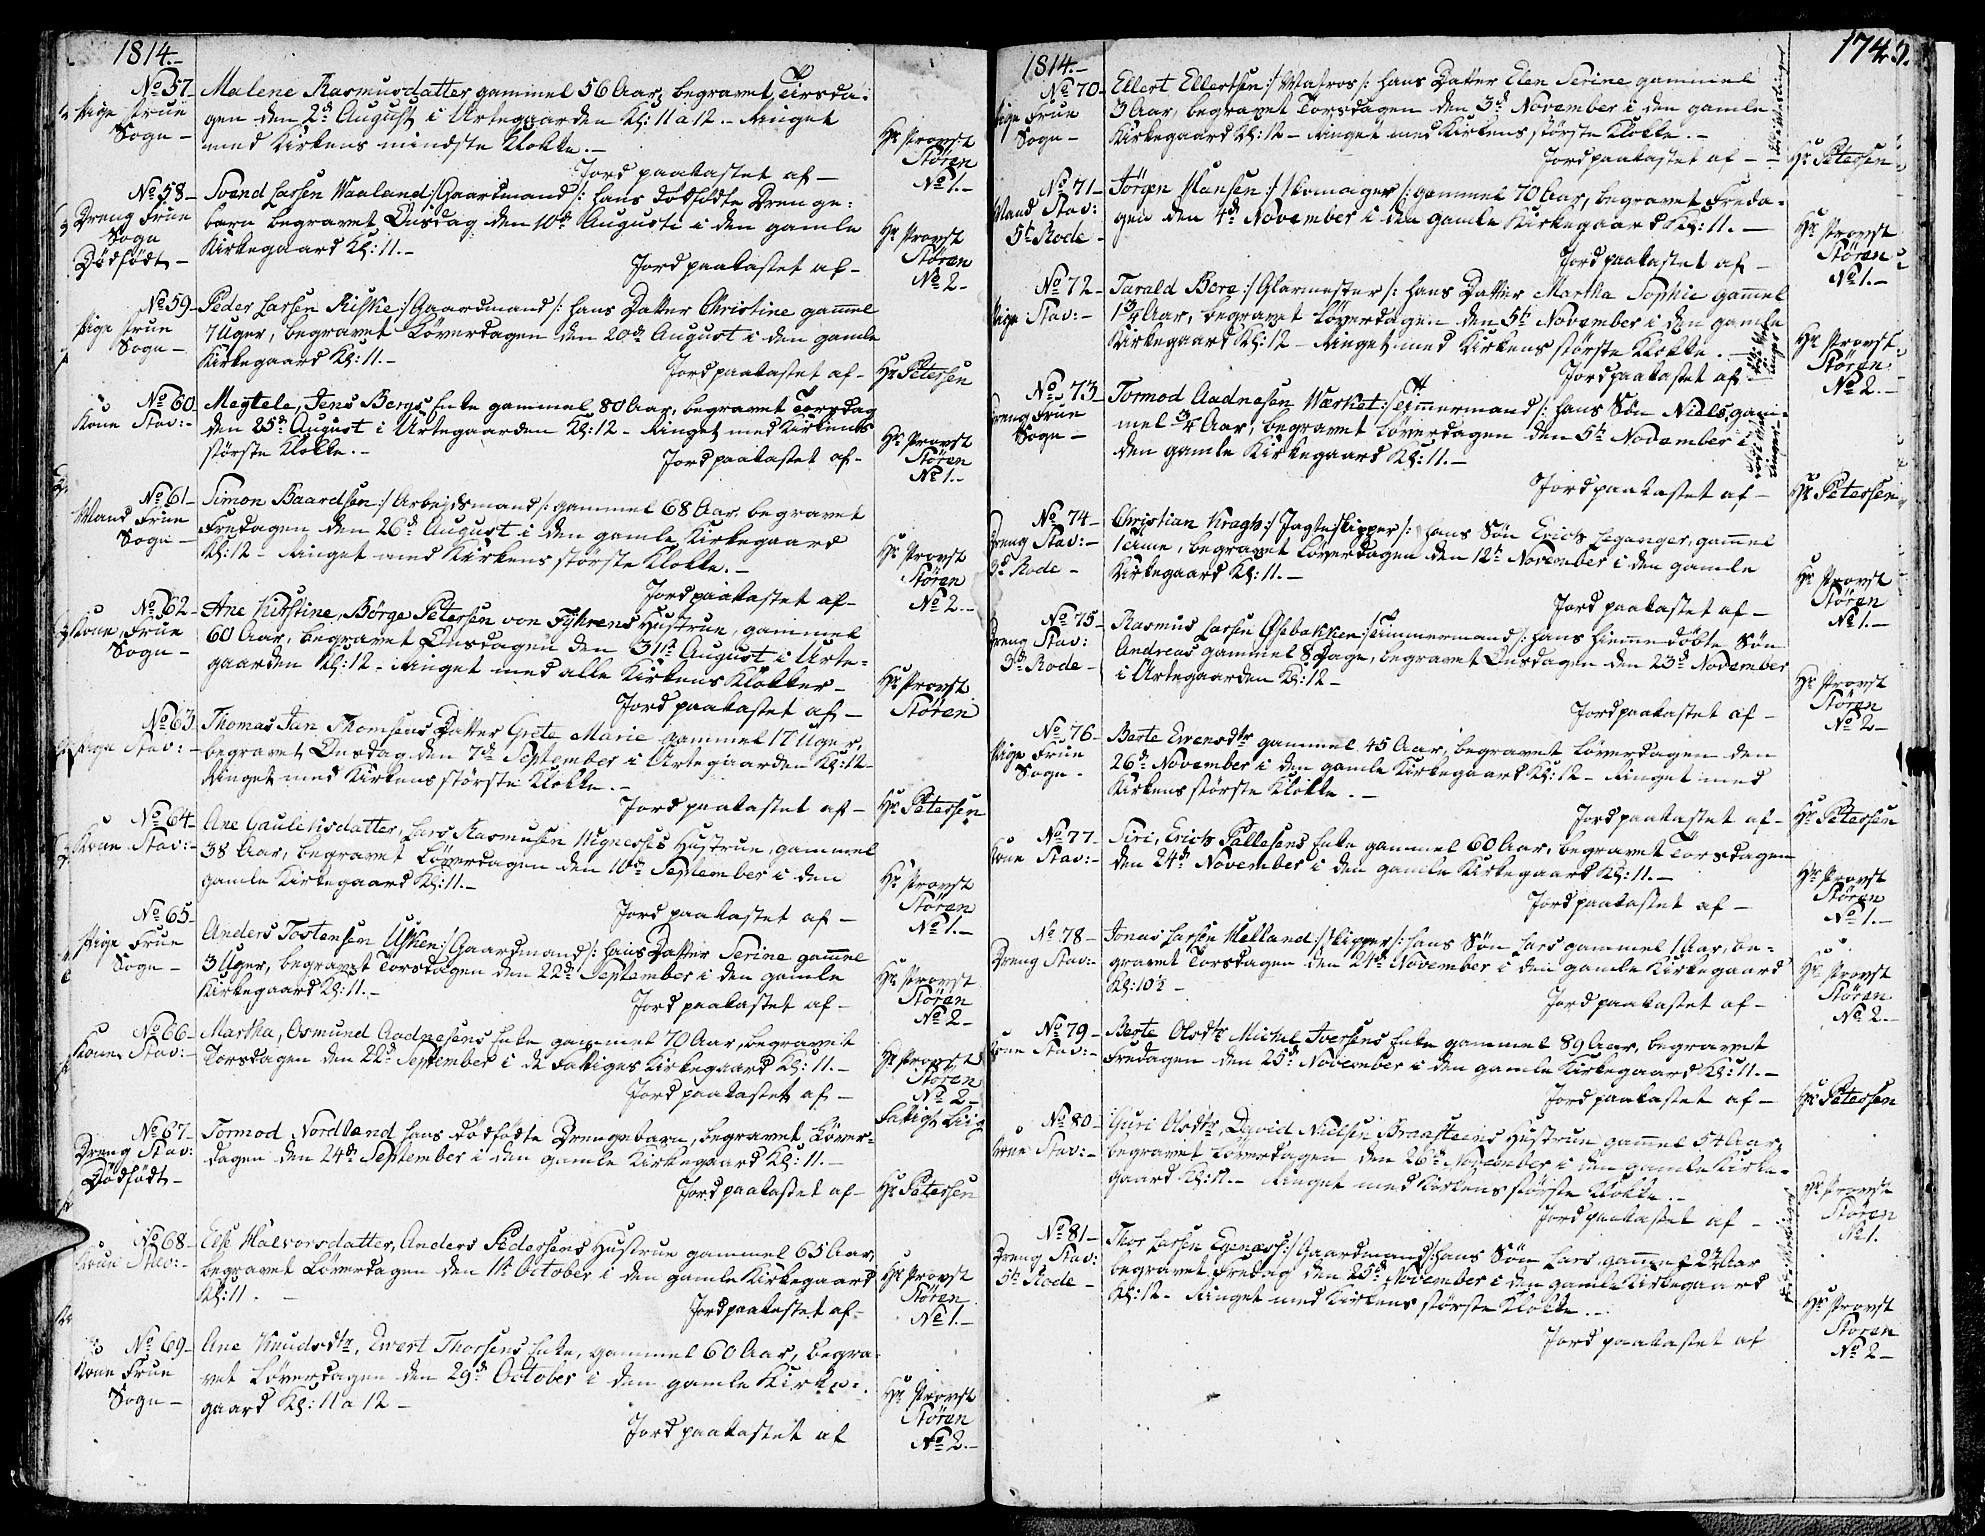 1814.-
No 57.
Pige Frue
Sogn -
Malene Rasmusdatter gammel 56 Aar, begravet Tirsda-
gen den 2d August i Urtegaarden Kl: 11 a 12. - Ringet
med Kirkens mindste Klokke. -
Jord paakastet af -
Hr Provst
Stören
No 1. -
No 58 -
Dreng Frue
Sogn
Dödfödt -
Svend Larsen Waaland :/ Gaardmand /: hans dödfödte Drenge-
barn begravet Onsdag den 10de Augusti i den gamle
Kirkegaard Kl: 11. -
Jord paakastet af -
Hr Provst
Stören
No 2 -
No 59 -
Pige Frue
Sogn -
Peder Larsen Riske :/ Gaardmand /: hans Datter Christine gamel
7 Uger, begravet Löverdagen den 20de August i den gamle
Kirkegaard Kl: 11. -
Jord paakastet af -
Hr Petersen
No 60
Kone Stav: -
Megtele, Jens Bergs Enke gammel 80 Aar, begravet Torsdag
den 25de August i Urtegaarden Kl: 12 - Ringet med Kirkens
störste Klokke. -
Jord paakastet af -
Hr Provst
Stören
No 1. -
No 61 -
Mand Frue
Sogn -
Simon Baardsen :/ Arbejdsmand /: gammel 68 Aar begravet
Fredagen den 26d August i den gamle Kirkegaard
Kl: 12 - Ringet med Kirkens störste Klokke. -
Jord paakastet af -
Hr Provst
Stören
No 2. -
No 62 -
Kone, Frue
Sogn -
Ane Kirstine, Börge Petersen von Fyhrens Hustrue, gammel
60 Aar, begravet Onsdagen den 31te August i Urte-
gaarden Kl: 12 - Ringet med alle Kirkens Klokker -
Jord paakastet af -
Hr Provst
Stören
No 63
Pige Stav: -
Thomas Jan Thomsens Datter Grete Marie gammel 17 Uger,
begravet Onsdag den 7de September i Urtegaarden Kl: 12 -
Ringet med Kirkens störste Klokke. -
Jord paakastet af -
Hr Petersen
No 64 -
Kone Stav: -
Ane Gaulichsdatter, Lars Rasmusen Wignesses Hustrue, gammel
38 Aar, begravet Löverdagen den 10de September i den
gamle Kirkegaard Kl: 11. -
Jord paakastet af -
Hr Provst
Stören
No 1. -
No 65 -
Pige Frue
Sogn -
Anders Tostensen Usken :/ Gaardmand /: hans Datter Serine gamel
3 Uger, begravet Torsdagen den 22de September i den gamle
Kirkegaard Kl: 11. -
Jord paakastet af -
Hr Provst
Stören
No 2 -
No 66 -
Kone Stav: -
Martha, Osmund Aadnesens Enke gammel 70 Aar, begravet
Torsdagen den 22de September i de Fattiges Kirkegaard Kl: 11. -
Jord paakastet af -
Hr Provst
Stören
No 2 -
Fattigt Liig
No 67 -
Dreng Stav:
Dödfödt -
Tormod Nordland hans dödfödte Drengebarn, begravet Löver-
dagen den 24de September i den gamle Kirkegaard Kl: 11. -
Jord paakastet af -
Hr Petersen
No 68 -
Kone Stav: -
Else Halvorsdatter, Anders Pedersens Hustrue gammel 65 Aar,
begravet Löverdagen den 1te October i den gamle Kirkegaard
Kl: 11. -
Jord paakastet af -
Hr Provst
Stören
No 1. -
No 69 -
Kone Frue
Sogn -
Ane Knudsdtr, Ewert Thorsens Enke, gammel 60 Aar, begra-
vet Löverdagen den 29de October i den gamle Kirke-
gaard Kl: 11 a 12 -
Jord paakastet af
Hr Provst
Stören
No 2. -
1814. -
174
No 70 -
Pige Frue
Sogn -
Ellert Ellertsen :/ Matros /: hans Datter Elen Serine gammel
3 Aar, begravet Torsdagen den 3de November i den gamle
Kirkegaard Kl: 12 - Ringet med Kirkens störste Klokke. -
Jord paakastet af -
Hr Petersen
No 71 -
Mand Stav:
5te Rode -
Jörgen Hansen :/ Skomager /: gammel 70 Aar, begravet Freda-
gen den 4de November i den gamle Kirkegaard Kl: 11. -
Jord paakastet af -
Hr Provst
Stören
No 1. -
No 72 -
Pige Stav: -
Tarald Bore :/ Glarmester /: hans Datter Martha Sophie gamel
1 3/4 Aar, begravet Löverdagen den 5te November i den gamle
Kirkegaard Kl: 12 - Ringet med Kirkens störste Klokke. -
Jord paakastet af -
Hr Provst
Stören
No 2. -
No 73
Dreng Frue
Sogn -
Tormod Aadnesen Wærket :/ Timmermand /: hans Sön Niels, gam-
mel 3/4 Aar, begravet Löverdagen den 5te November i
den gamle Kirkegaard Kl: 11. -
Jord paakastet af -
Hr Petersen
No 74 -
Dreng Stav: -
Rode -
Christian Kragh :/ Jagteskipper /: hans Sön Erich Leganger, gamel
1 Time, begravet Löverdagen den 12te November i den gamle
Kirkegaard Kl: 11. -
Jord paakastet af -
Hr Provst
Stören
No 1. -
No 75 -
Dreng Stav:
3de Rode -
Rasmus Larsen Osebakken :/ Timmermand /: hans hiemedöbte Sön
Andreas gammel 8 Dage, begravet Onsdagen den 23de November
i Urtegaarden Kl: 12 -
Jord paakastet af -
Hr Provst
Stören
No 2 -
No 76 -
Pige Frue
Sogn -
Berte Ewensdtr gammel 45 Aar, begravet Löverdagen den
26de November i den gamle Kirkegaard Kl: 12 - Ringet med
Kirkens störste Klokke. -
Jord paakastet af -
Hr Petersen
No 77 -
Kone Stav: -
Siri, Erich Pallesens Enke gammel 60 Aar, begravet Torsdagen
den 24de November i den gamle Kirkegaard Kl: 11. -
Jord paakastet af -
Hr Provst
Stören
No 1. -
No 78 -
Dreng Stav: -
Jonas Larsen Melland :/ Skipper /: hans Sön Lars gammel 1 Aar, be-
gravet Torsdagen den 24de November i den gamle Kirkegaard
Kl: 10½ -
Jord paakastet af -
Hr Provst
Stören
No 2. -
No 79 -
Kone Stav: -
Berte Olsdtr Michel Iversens Enke gammel 89 Aar, begravet
Fredagen den 25de November i den gamle Kirkegaard Kl: 11. -
Jord paakastet af -
Hr Petersen
No 80 -
Kone Stav: -
Guri Olsdtr, David Nielsen Braasteens Hustrue gamel 54 Aar,
begravet Löverdagen den 26de November i den gamle Kirke-
gaard Kl: 11. - Ringet med Kirkens störste Klokke. -
Jord paakastet af -
Hr Provst
Stören
No 1.
No 81 -
Dreng Stav:
5te Rode -
Thor Larsen Egenæss :/ Gaardmand /: hans Sön Lars gamel Aar
begravet Fredag den 25de November i den gamle Kirkegaard
Kl: 12 - Ringet med Kirkens störste Klokke. -
Jord paakastet af
Hr Provst
Stören
No 2 -